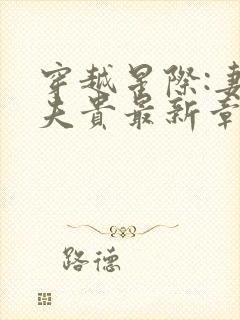 穿越星際:妻
夫貴最新章
路德